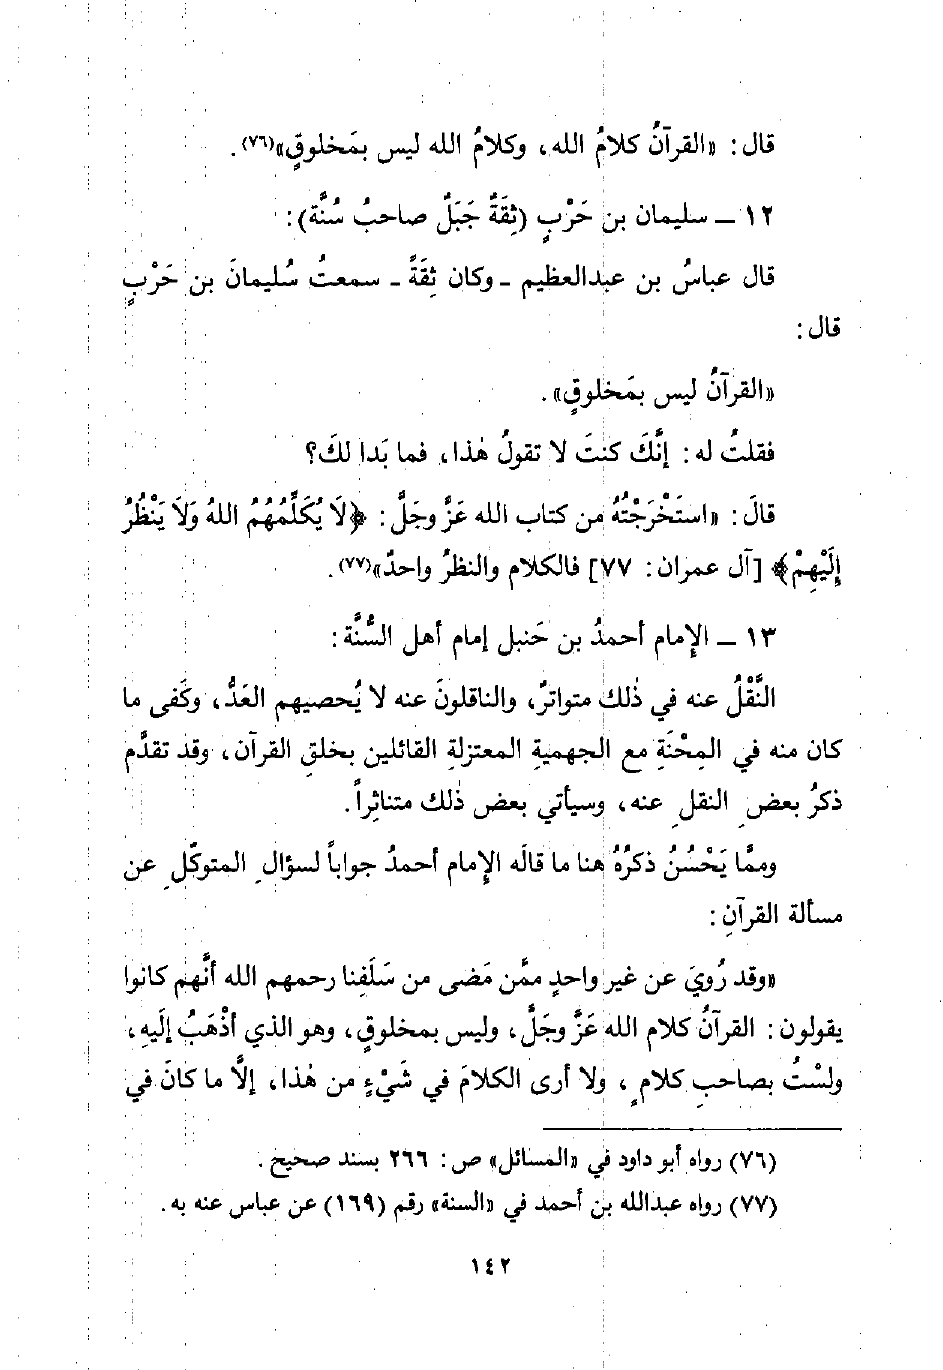 قال: «القرآنُ كلامُ الله، وكلامُ الله ليس بمَخلوقٍ»(٧٦).
١٢ ـ سليمان بن حَرْبٍ (ثِقَةٌ جَبَلٌ صاحبُ سُنَّة):
قال عباسُ بن عبدالعظيم ـ وكان ثِقَةً ـ سمعتُ سُليمانَ بن حَرْبٍ
قال:
«القرآنُ ليس بمَخلوقٍ».
فقلتُ له: إنَّكَ كنتَ لا تقولُ هٰذا، فما بَدا لكَ؟
قالَ: «استَخْرَجْتُهُ من كتاب الله عَزَّ وجَلَّ: ﴿لَا يُكَلِّمُهُمُ اللهُ وَلَا يَنْظُرُ
إِلَيْهِمْ﴾ [آل عمران: ٧٧] فالكلام والنظرُ واحدٌ»(٧٧).
١٣ ـ الإمام أحمدُ بن حَنبل إمام أهل السُّنَّة:
النَّقْلُ عنه في ذٰلك متواترٌ، والناقلونَ عنه لا يُحصيهم العَدُّ، وكَفى ما
كان منه في المِحْنَةِ مع الجهميةِ المعتزلةِ القائلين بخلقِ القرآن، وقد تقدَّم
ذكرُ بعضِ النقلِ عنه، وسيأتي بعض ذٰلك متناثِراً.
وممَّا يَحْسُنُ ذكرُهُ هنا ما قالَه الإمام أحمدُ جواباً لسؤالِ المتوكّلِ عن
مسألة القرآنِ:
«وقد رُويَ عن غير واحدٍ ممَّن مَضى من سَلَفِنا رحمهم الله أنَّهم كانوا
يقولون: القرآنُ كلام الله عَزَّ وجَلَّ، وليس بمخلوقٍ، وهو الذي أذْهَبُ إلَيهِ،
ولسْتُ بصاحبِ كلامٍ، ولا أرى الكلامَ في شَيْءٍ من هٰذا، إلَّا ما كانَ في
(٧٦) رواه أبو داود في «المسائل» ص: ٢٦٦ بسند صحيح.
(٧٧) رواه عبدالله بن أحمد في «السنة» رقم (١٦٩) عن عباس عنه به.
١٤٢